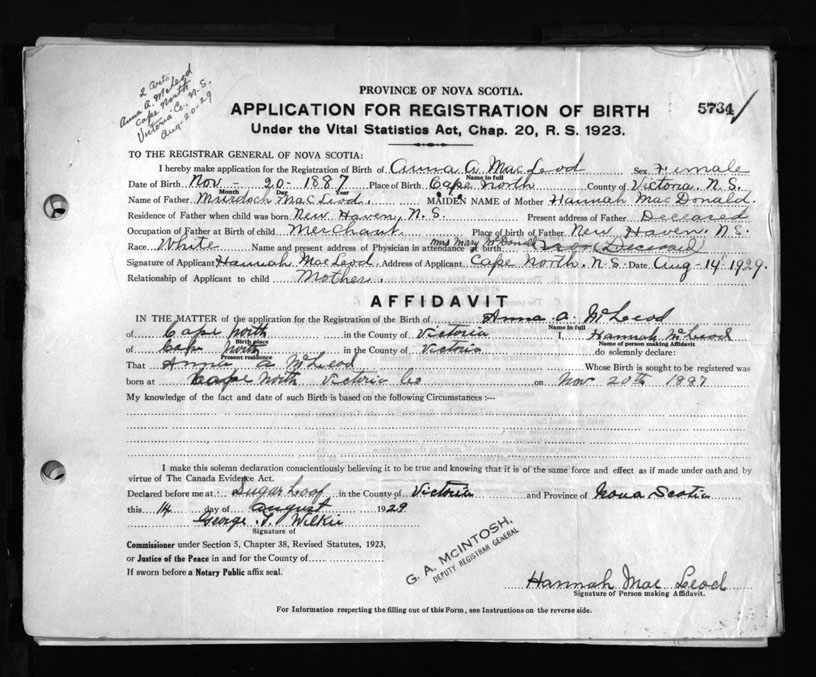 2 Certs
Anna A. McLeod
Cape North
Victoria Co., N.S.
Aug-20-29
PROVINCE OF NOVA SCOTIA.
APPLICATION FOR REGISTRATION OF BIRTH
5734
Under the Vital Statistics Act, Chap. 20, R. S. 1923.
TO THE REGISTRAR GENERAL OF NOVA SCOTIA:
I hereby make application for the Registration of Birth of Anna A MacLeod Sex Female
Name in full
Date of Birth Nov - 20 - 1887 Place of Birth Cape North County of Victoria, N.S.
Month Day Year
Name of Father Murdoch MacLeod. MAIDEN NAME of Mother Hannah MacDonald.
Residence of Father when child was born New Haven, N.S. Present address of Father Deceased
Occupation of Father at Birth of child Merchant. Place of birth of Father New Haven. N.S.
Race White Name and present address of Physician in attendance at birth Mrs Mary (Deceased)
Signature of Applicant Hannah MacLeod. Address of Applicant Cape North. N.S. Date Aug-14 1929.
Relationship of Applicant to child Mother.
AFFIDAVIT
IN THE MATTER of the application for the Registration of the Birth of Anna A. McLeod
Name in full
of Cape North in the County of Victoria I, Hannah McLeod
Birth place Name of person making Affidavit
of Cape North in the County of Victoria do solemnly declare:
Present residence
That Anna A McLeod Whose Birth is sought to be registered was
born at Cape North Victoria Co on Nov 20th 1887
My knowledge of the fact and date of such Birth is based on the following Circumstances :—
I make this solemn declaration conscientiously believing it to be true and knowing that it is of the same force and effect as if made under oath and by
virtue of The Canada Evidence Act.
Declared before me at Sugar Loaf in the County of Victoria and Province of Nova Scotia
this 14 day of August 1929
George J. Wilkie
Signature of
Commissioner under Section 5, Chapter 38, Revised Statutes, 1923,
or Justice of the Peace in and for the County of
If sworn before a Notary Public affix seal.
G. A. McINTOSH,
DEPUTY REGISTRAR GENERAL
Hannah MacLeod
Signature of Person making Affidavit.
For Information respecting the filling out of this Form, see Instructions on the reverse side.